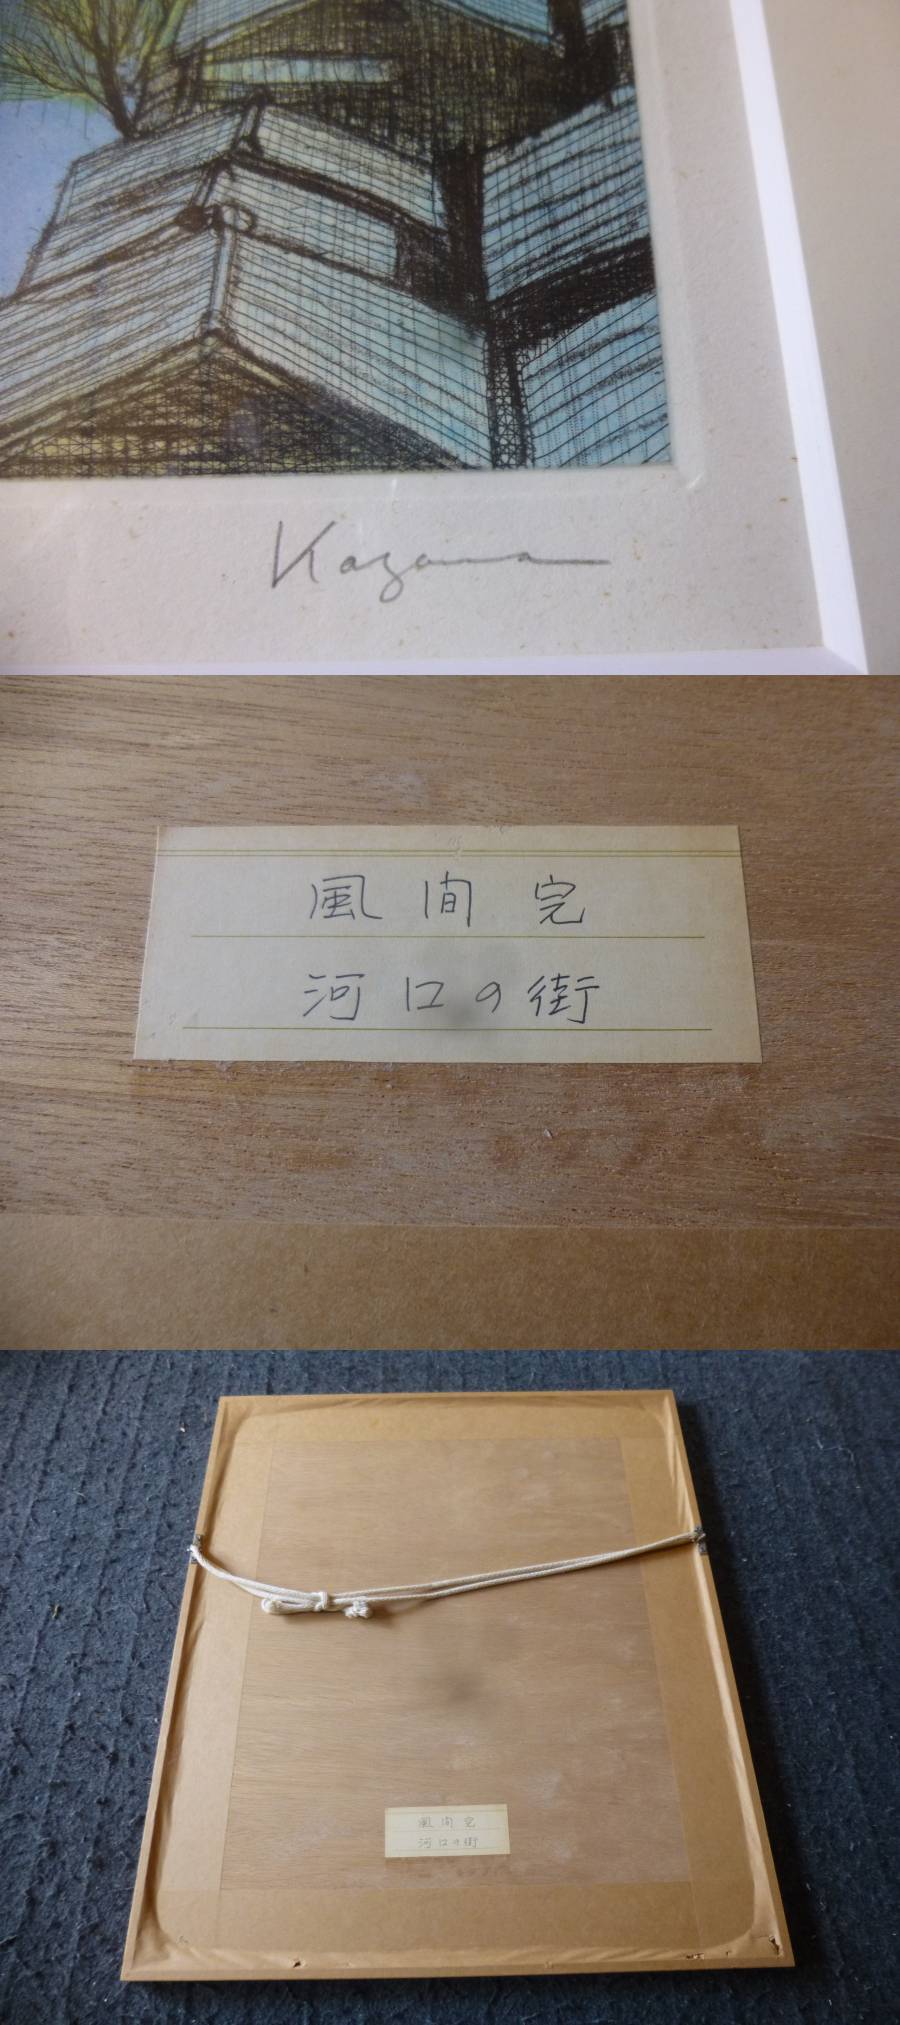 Kazama
風間完
河口の街
風間完
河口の街